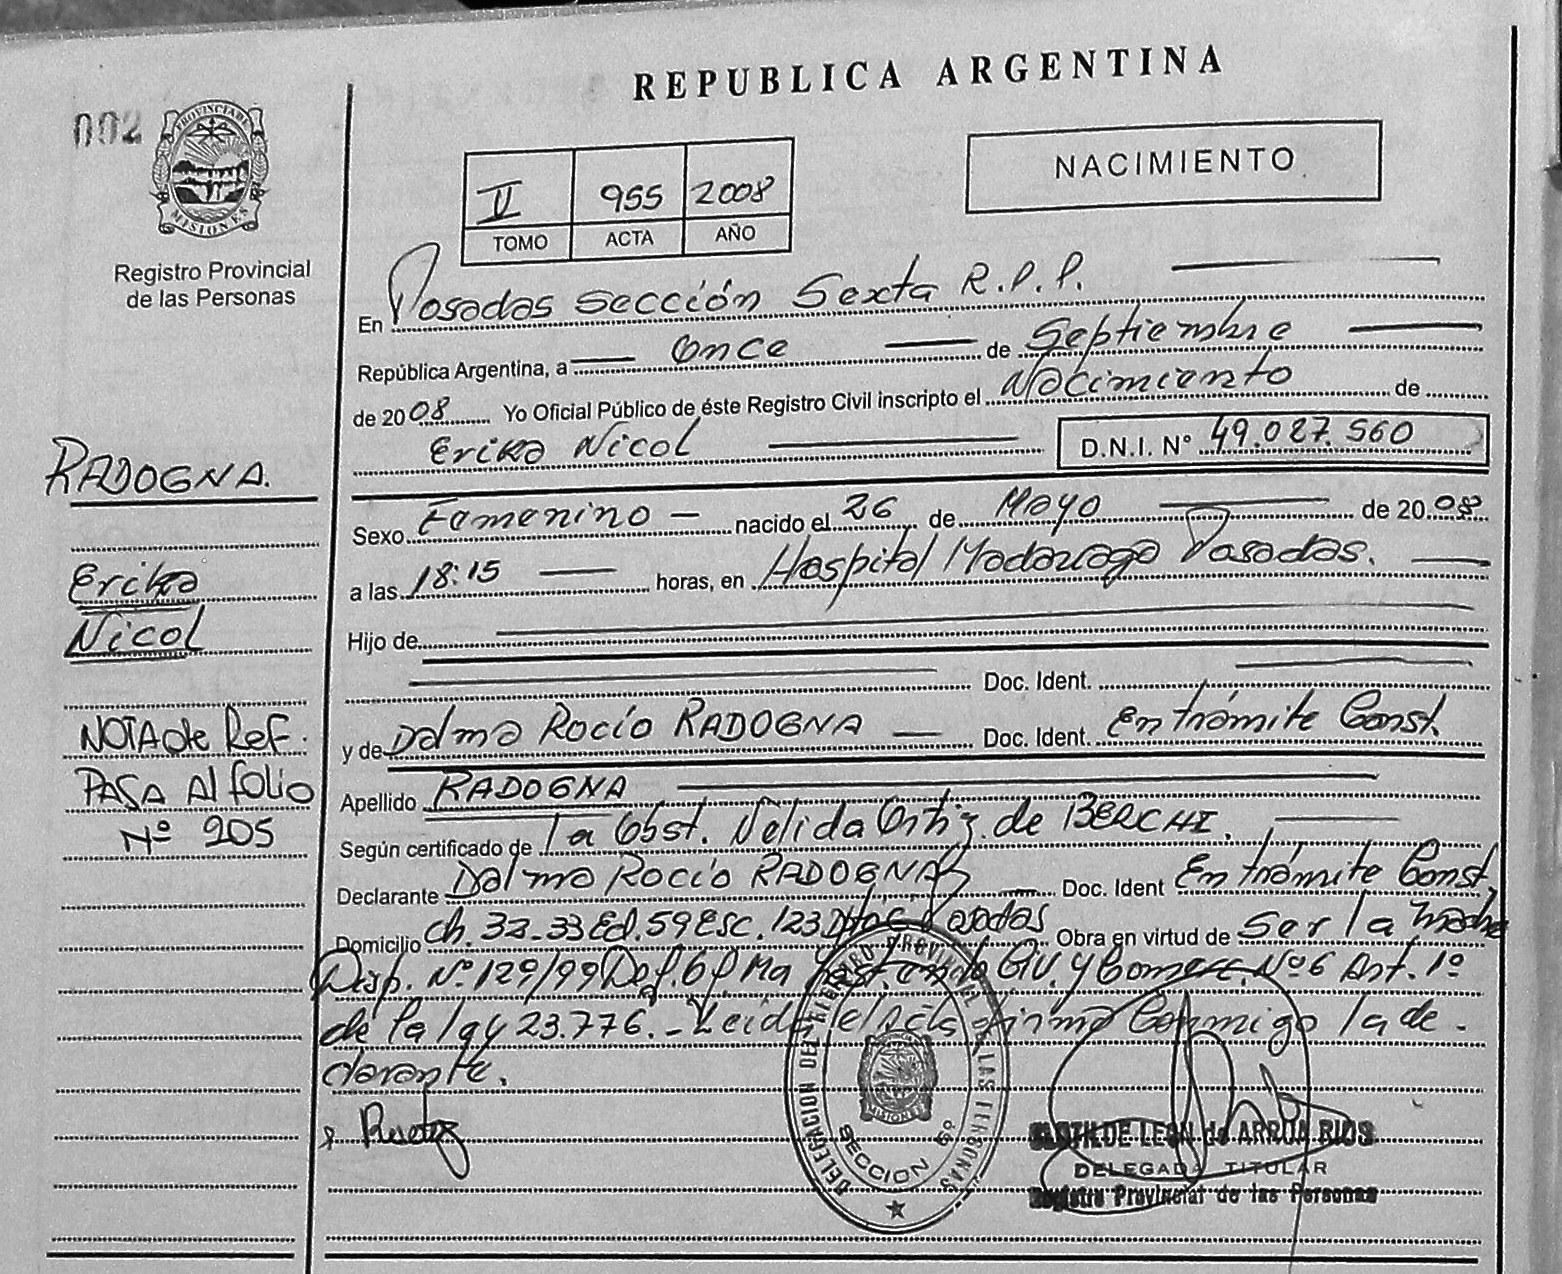 REPUBLICA ARGENTINA
002
PROVINCIA DE
MISIONES
Registro Provincial
de las Personas
NACIMIENTO
II 955 2008
TOMO ACTA AÑO
En Posadas Sección Sexta R.P.P.
República Argentina, a once de Septiembre
de 2008 Yo Oficial Público de éste Registro Civil inscripto el Nacimiento de
Erika Nicol D.N.I. Nº 49.027.560
RADOGNA.
Erika
Nicol
NOTA de Ref.
PASA Al folio
Nº 205
Sexo Femenino - nacido el 26 de Mayo de 2008
a las 18:15 horas, en Hospital Madariaga Posadas.
Hijo de
Doc. Ident.
y de Dalma Rocío RADOGNA Doc. Ident. En trámite Const.
Apellido RADOGNA
Según certificado de la Obst. Nelida Ortiz de BERCHI.
Declarante Dalma Rocío RADOGNA Doc. Ident En trámite Const,
Domicilio Ch. 32-33 Ed. 59 Esc. 123 Posadas Obra en virtud de Ser la madre
Disp. Nº 129/99 Def. Of. Civ. y Comerc. Nº 6 Art. 1º
de la ley 23.776.- Leida el Acta firma Conmigo la de-
clarante.
DELEGACION DEL REGISTRO PROVINCIAL DE LAS PERSONAS
MISIONES
SECCION 6º
CLOTILDE LEON de ARRUA RIOS
DELEGADA TITULAR
Registro Provincial de las Personas